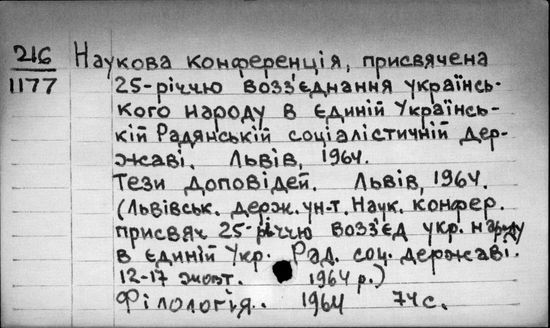 216 Наукова конференція, присвячена
1177 25-річчю возз'єднання українсь-
кого народу в єдиній Українсь-
кій Радянській соціалістичній дер-
жаві. Львів, 1964.
Тези доповідей. Львів, 1964.
(Львівськ. держ. ун-т. Наук. конфер.
присвяч 25-річчю возз'єд укр. народу
в єдиній Укр. Рад. соц. державі.
12-17 жовт. 1964 р.)
Філологія. 1964 74 с.